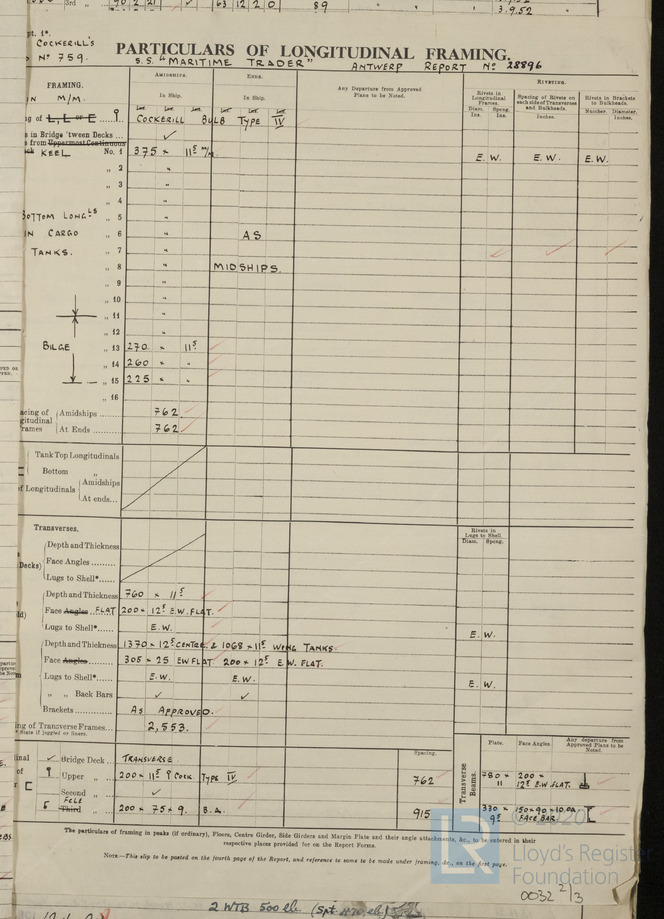 3rd 90 2 21 63 12 2 0 89
3.9.52
COCKERILL'S
Nº 759.
PARTICULARS OF LONGITUDINAL FRAMING.
S.S. "MARITIME TRADER" ANTWERP REPORT Nº 28896
FRAMING.
IN M/M.
AMIDSHIPS.
In Ship.
ENDS.
In Ship.
Any Departure from Approved Plans to be Noted.
RIVETING.
Rivets in Longitudinal Frames.
Diam. Ins. Spcng. Ins.
Spacing of Rivets on each side of Transverses and Bulkheads.
Inches.
Rivets in Brackets to Bulkheads.
Number. Diameter, Inches.
COCKERILL BULB TYPE IV
in Bridge 'tween Decks ... ✓
from Uppermost Continuous
KEEL No. 1 375 × 11⁵ m/m E. W. E. W. E. W.
„ 2 "
„ 3 "
„ 4 "
BOTTOM LONGLS „ 5 "
IN CARGO „ 6 " AS
TANKS. „ 7 "
„ 8 " MIDSHIPS.
„ 9 "
„ 10 "
„ 11 "
„ 12 "
BILGE „ 13 270 × 11⁵
„ 14 260 × "
„ 15 225 × "
„ 16
Amidships ...... 762
At Ends ......... 762
Tank Top Longitudinals
Bottom „
of Longitudinals Amidships
At ends...
Transverses.
Rivets in Lugs to Shell.
Diam. Spcng.
Depth and Thickness
Decks) Face Angles ......
Lugs to Shell*......
Depth and Thickness 760 × 11⁵
Face Angles FLAT 200 × 12⁵ E.W. FLAT.
Lugs to Shell*...... E.W. E. W.
Depth and Thickness 1370 × 12⁵ CENTRE. & 1068 × 11⁵ WING TANKS.
Face Angles ......... 305 × 25 EW FLAT 200 × 12⁵ E.W. FLAT.
Lugs to Shell*...... E.W. E.W. E. W.
„ „ Back Bars ✓ ✓
Brackets ............ AS APPROVED.
ing of Transverse Frames... 2,553.
* State if joggled or liners.
Spacing.
Plate. Face Angles. Any departure from Approved Plans to be Noted.
✓ Bridge Deck ... TRANSVERSE
Upper „ ...... 200 × 11⁵ COCK. TYPE IV 762
Transverse Beams.
780 × 11 200 × 12⁵ E.W. FLAT.
Second „ ...... ✓
FCLE
Third „ ...... 200 × 75 × 9. B.A. 915
330 × 9⁵ 150 × 90 × 10 O.A. FACE BAR.
The particulars of framing in peaks (if ordinary), Floors, Centre Girder, Side Girders and Margin Plate and their angle attachments, &c., to be entered in their
respective places provided for on the Report Forms.
NOTE.—This slip to be posted on the fourth page of the Report, and reference to same to be made under framing, &c., on the first page.
© 2020
LR
Lloyd's Register
Foundation
0032 2/3
2 WTB 500 lb.